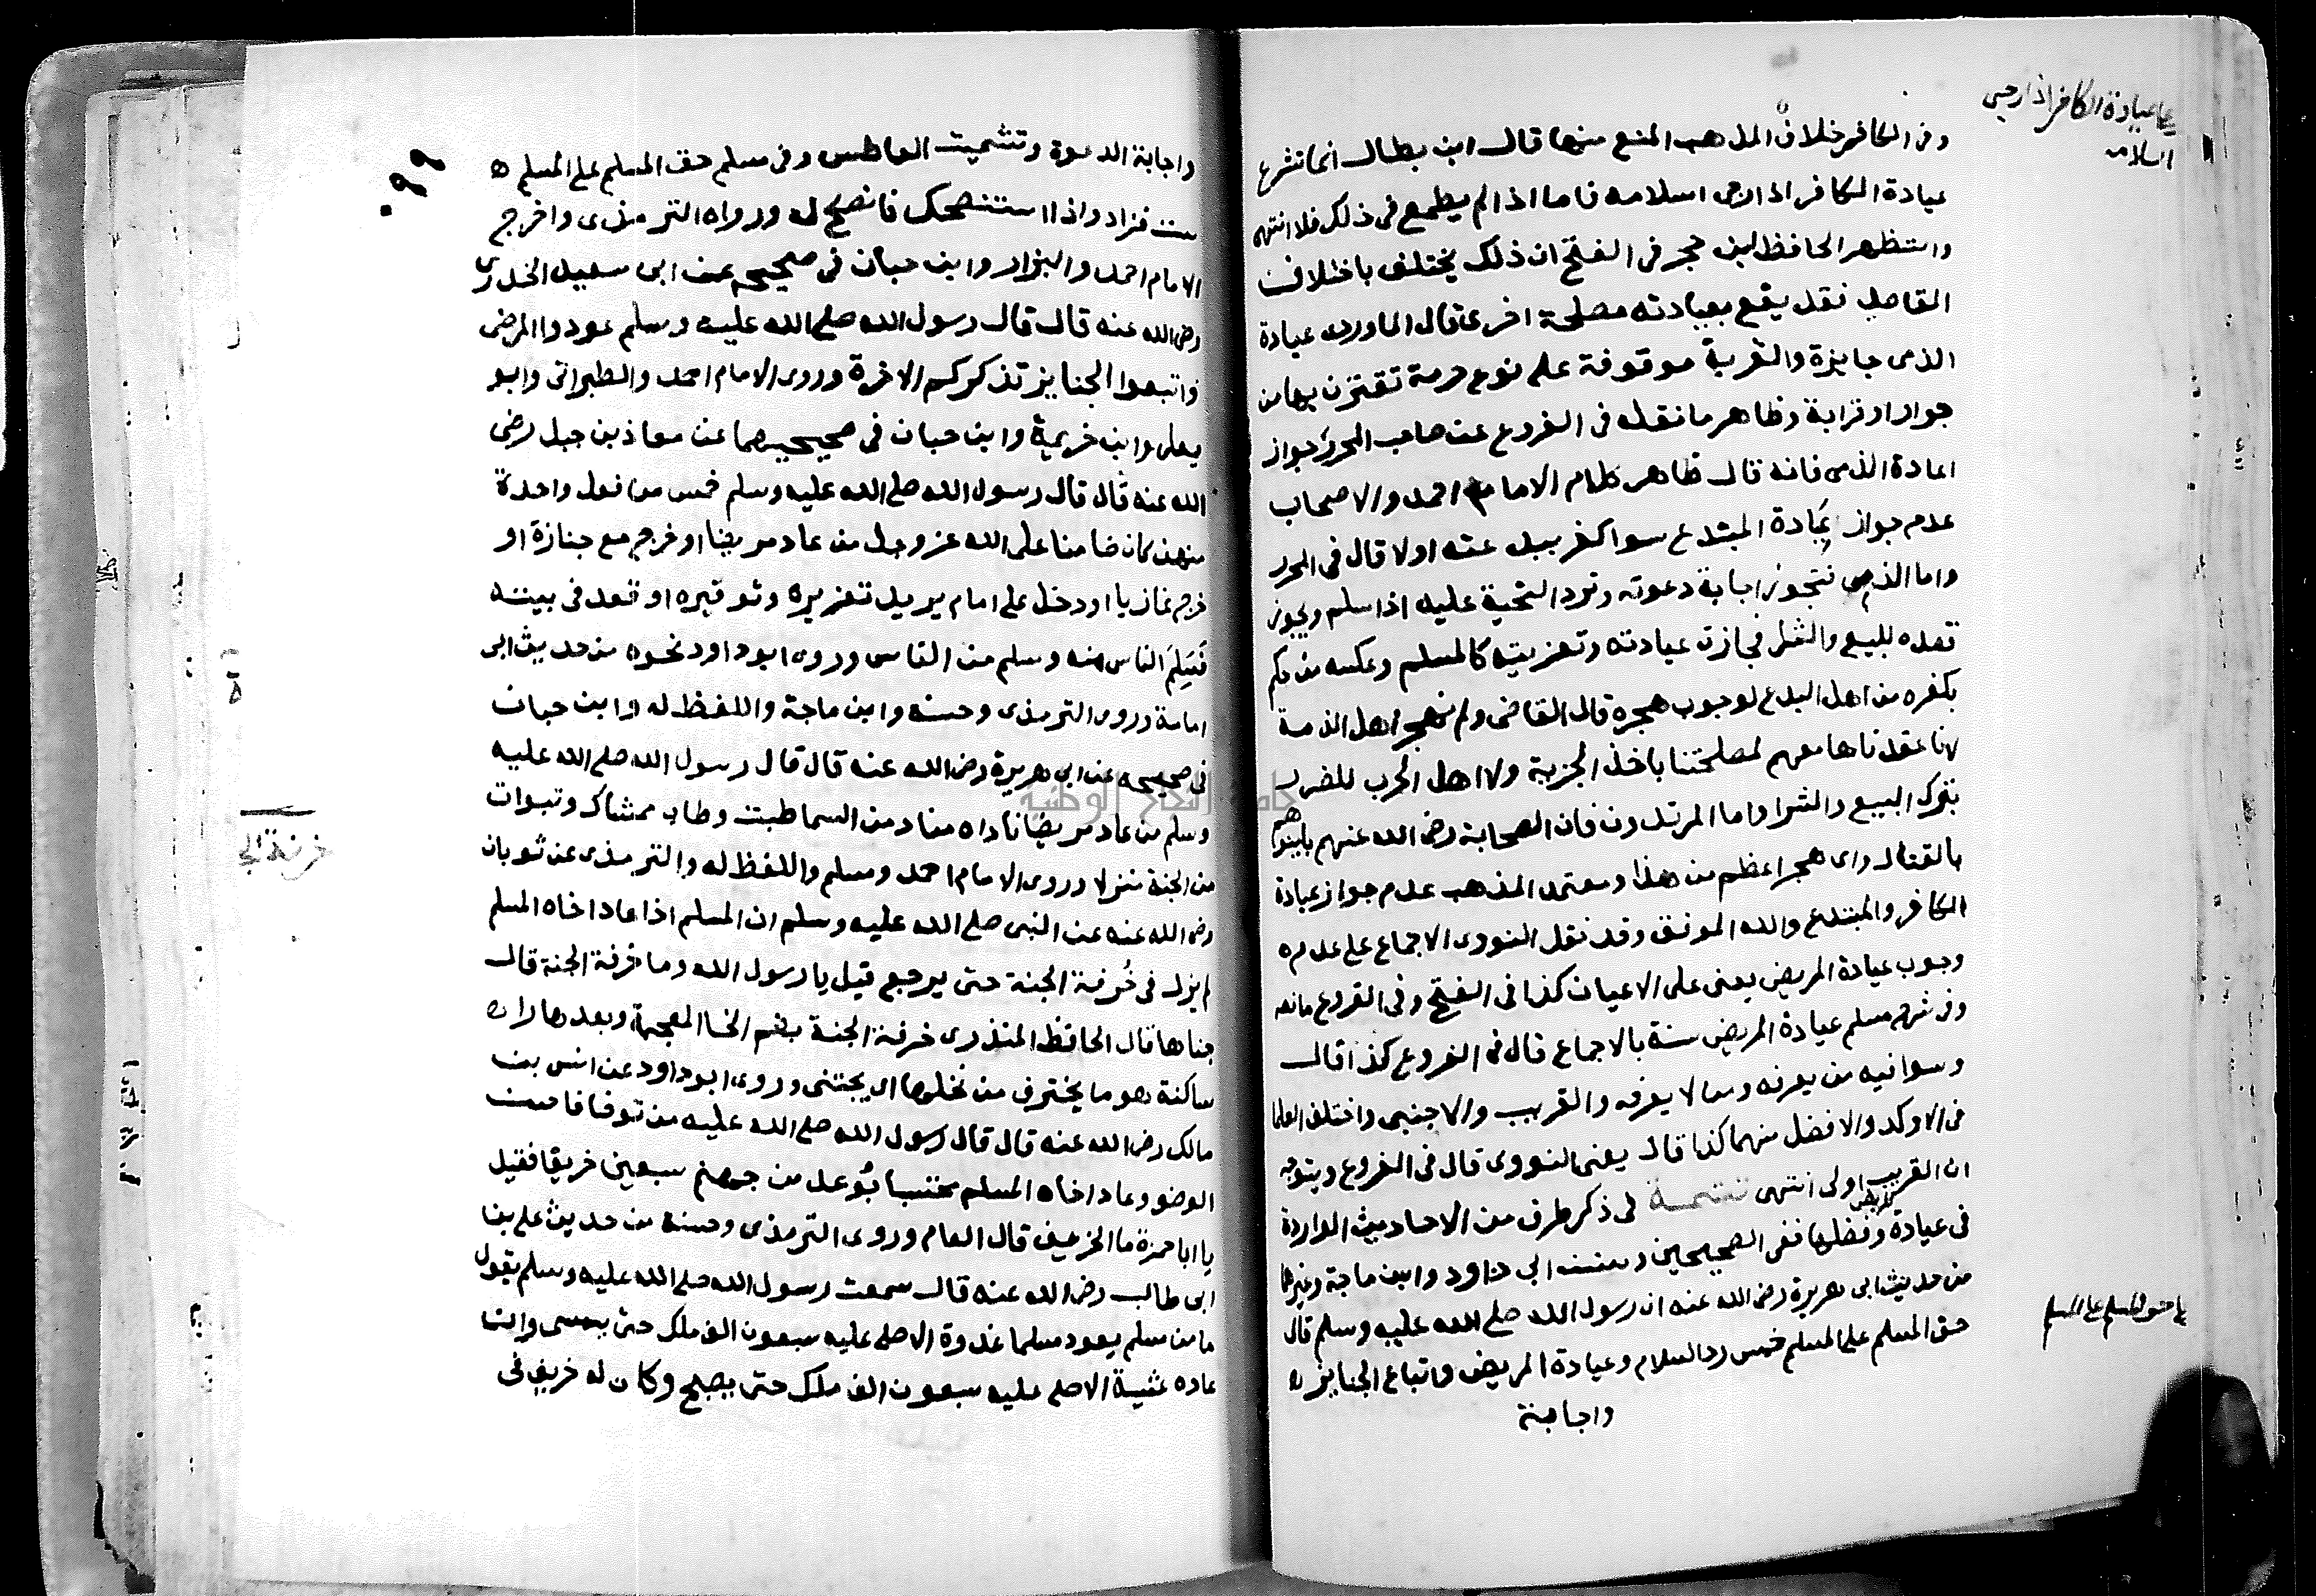 عيادة الكافر اذا رجي
اسلامه
وفي الكافر خلاف المذهب المنع منها قال ابن بطال انما تشرع
عيادة الكافر اذا رجى اسلامه فاما اذا لم يطمع فى ذلك فلا انتهى
واستظهر الحافظ ابن حجر فى الفتح ان ذلك يختلف باختلاف
المقاصد فقد يقع بعيادته مصلحة اخرى قال الماوردى عيادة
الذمى جايزة والقربة موقوفة على نوع حرمة تقترن بها من
جوار او قرابة وظاهر ما نقله فى الفروع عن صاحب المحرر جواز
اعادة الذمى فانه قال ظاهر كلام الامام احمد والاصحاب
عدم جواز عيادة المبتدع سوا كفر ببدعته اولا قال فى المحرر
واما الذمى فتجوز اجابة دعوته وترد التحية عليه اذا سلم ويجوز
قصده للبيع والشرا فجازت عيادته وتعزيته كالمسلم وعكسه من حكم
بكفره من اهل البدع لوجوب هجره قال القاضى ولم نهجر اهل الذمة
لانا عقدناها معهم لمصلحتنا باخذ الجزية ولا اهل الحرب للضرر
بترك البيع والشرا واما المرتدون فان الصحابة رضى الله عنهم باينوهم
بالقتال واى هجر اعظم من هذا ومعتمد المذهب عدم جواز عيادة
الكافر والمبتدع والله الموفق وقد نقل النووى الاجماع على عدم
وجوب عيادة المريض يعنى على الاعيان كذا فى الفتح وفى الفروع ما نصه
وفى شرح مسلم عيادة المريض سنة بالاجماع قال فى الفروع كذا قال
وسوا فيه من يعرفه ومن لا يعرفه والقريب والاجنبى واختلف العلما
فى الاوكد والافضل منهما كذا قال يعنى النووى قال فى الفروع ويتوجه
ان القريب اولى انتهى تتمة فى ذكر طرف من الاحاديث الواردة
فى عيادة المريض وفضلها ففى الصحيحين وسنن ابى داود وابن ماجة وغيرها
من حديث ابى هريرة رضى الله عنه ان رسول الله صلى الله عليه وسلم قال
حق المسلم على المسلم خمس رد السلام وعيادة المريض واتباع الجنايز
واجابة
حق المسلم على المسلم
٩٩
واجابة الدعوة وتشميت العاطس وفى مسلم حق المسلم على المسلم
ست فزاد واذا استنصحك فانصح له ورواه الترمذى واخرج
الامام احمد والبزار وابن حبان فى صحيحه عن ابى سعيد الخدرى
رضى الله عنه قال قال رسول الله صلى الله عليه وسلم عودوا المرضى
واتبعوا الجنايز تذكركم الاخرة وروى الامام احمد والطبرانى وابو
يعلى وابن خزيمة وابن حبان فى صحيحيهما عن معاذ بن جبل رضى
الله عنه قال قال رسول الله صلى الله عليه وسلم خمس من فعل واحدة
منهن كان ضامنا على الله عز وجل من عاد مريضا او خرج مع جنازة او
خرج غازيا او دخل على امام يريد تعزيره وتوقيره او قعد فى بيته
فَسَلِمَ الناس منه وسلم من الناس وروى ابو داود نحوه من حديث ابى
امامة وروى الترمذى وحسنه وابن ماجة واللفظ له وابن حبان
فى صحيحه عن ابى هريرة رضى الله عنه قال قال رسول الله صلى الله عليه
وسلم من عاد مريضا ناداه مناد من السما طبت وطاب ممشاك وتبوات
من الجنة منزلا وروى الامام احمد ومسلم واللفظ له والترمذى عن ثوبان
رضى الله عنه عن النبى صلى الله عليه وسلم ان المسلم اذا عاد اخاه المسلم
لم يزل فى خُرفة الجنة حتى يرجع قيل يا رسول الله وما خرفة الجنة قال
جناها قال الحافظ المنذرى خرفة الجنة بضم الخا المعجمة وبعدها را
ساكنة هو ما يخترف من نخلها اى يجتنى وروى ابو داود عن انس بن
مالك رضى الله عنه قال قال رسول الله صلى الله عليه من توضا فاحسن
الوضو وعاد اخاه المسلم محتسبا بُوعد من جهنم سبعين خريفا فقيل
يا ابا حمزة ما الخريف قال العام وروى الترمذى وحسنه من حديث على بن
ابى طالب رضى الله عنه قال سمعت رسول الله صلى الله عليه وسلم يقول
ما من مسلم يعود مسلما غدوة الا صلى عليه سبعون الف ملك حتى يمسى وان
عاده عشية الا صلى عليه سبعون الف ملك حتى يصبح وكان له خريف فى
خرفة الج
جامعة النجاح الوطنية